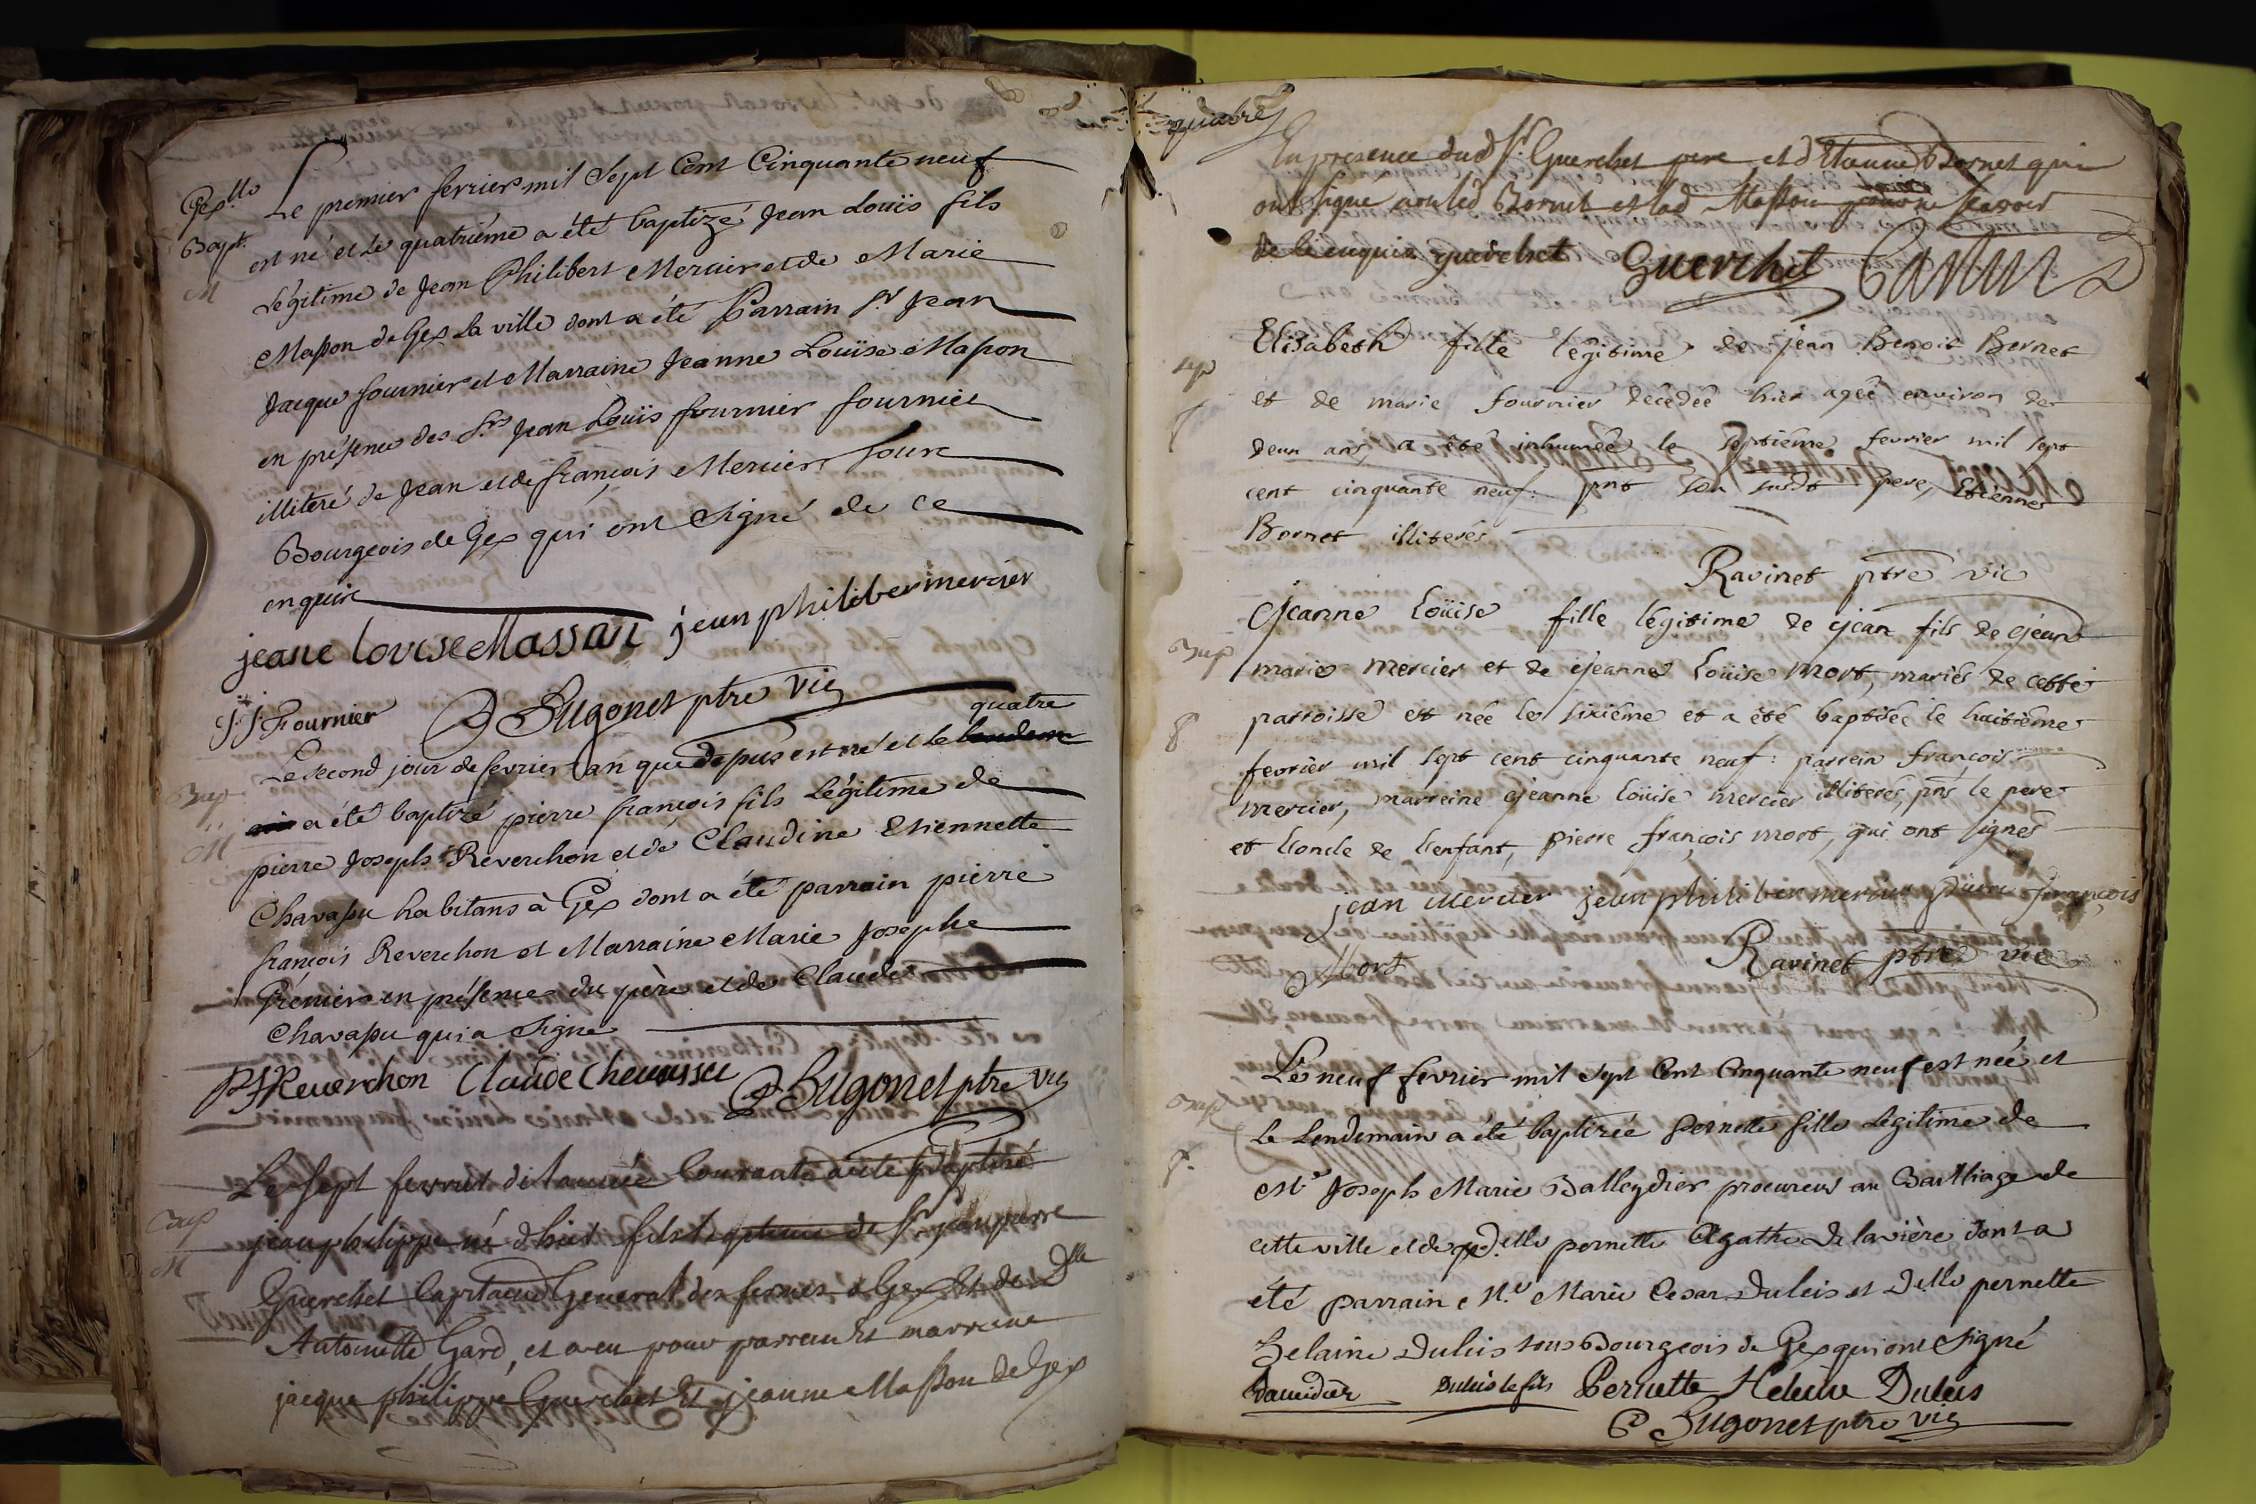 Gex la v.lle
Bapt.
M
Le premier fevrier mil Sept Cent Cinquante neuf
est né et Le quatriéme a été baptizé Jean Louïs fils
Légitime de Jean Philibert Mercier et de Marie
Maſson de Gex La ville dont a été Parrain Sr. Jean
Jacque fournier et Marraine Jeanne Louïse Maſson
en préſence des Srs. Jean Louïs fournier fournier
illiteré de Jean et de françois Mercier tous
Bourgeois de Gex qui ont Signé de ce
enquis
jeane Louise Massan jean philiber mercier
J J Fournier Sugonet ptre Vic
Bap
M
quatre
Le second jour de fevrier l'an que depus est né et le
a été baptizé pierre françois fils Légitime de
pierre Joseph Reverchon et de Claudine Etiennette
Chavaſsu habitans à Gex dont a été parrain pierre
françois Reverchon et Marraine Marie Josephe
Grenier en préſence du père et de Claude
Chavaſsu qui a Signé
P f Reverchon Claude Chavassu Sugonet ptre Vic
Bap
M
Le sept fevrier de l'année Courante a été baptisé
jean philippe né d'hier fils legitime de Sr. jean pierre
Guerchet Capitaine General des fermes a Gex Et de Dlle
Antoinette Gard, et a eu pour parrain Et marraine
jacque philippe Guerchet Et jeanne Maſson de Gex
quatre
En presence dud Sr. Guerchet pere et d'Etienne Bornet qui
ont signé non led Bornet et lad Maſson pour ne scavoir
de le enquis guerchet Guerchet
sep
f
Elisabeth fille légitime de jean Benoit Bornet
et de marie fournier décédée hier agée environ de
deux ans, a été inhumée le septiéme fevrier mil sept
cent cinquante neuf: pnt son susdt pere, Etienne
Bornet illiterés
Ravinet ptre vic
Bap
f
Jeanne Loüise fille légitime de jean fils de jean
marie mercier et de jeanne Loüise mort, mariés de cette
parroisse est née le sixiéme et a été baptisée le huitiéme
fevrier mil sept cent cinquante neuf: parrein françois
mercier, marreine jeanne loüise mercier illiterés, pns le pere
et l'oncle de l'enfant, pierre françois mort, qui ont signés
jean mercier jean philiber mercier pierre françois
Mort Ravinet ptre vic
Bap
f.
Le neuf fevrier mil Sept Cent Cinquante neuf est née et
Le Lendemain a été baptizée Pernette fille Légitime de
Me Joseph Marie Balleydier procureur au Bailliage de
cette ville et de delle pernette Agathe De lavière dont a
été parrain Me Marie Cesar Duleis et Delle pernette
Helaine Duleis tous Bourgeois de Gex qui ont Signé
Duleis le fils Pernette Heleine Duleis
Sugonet ptre Vic